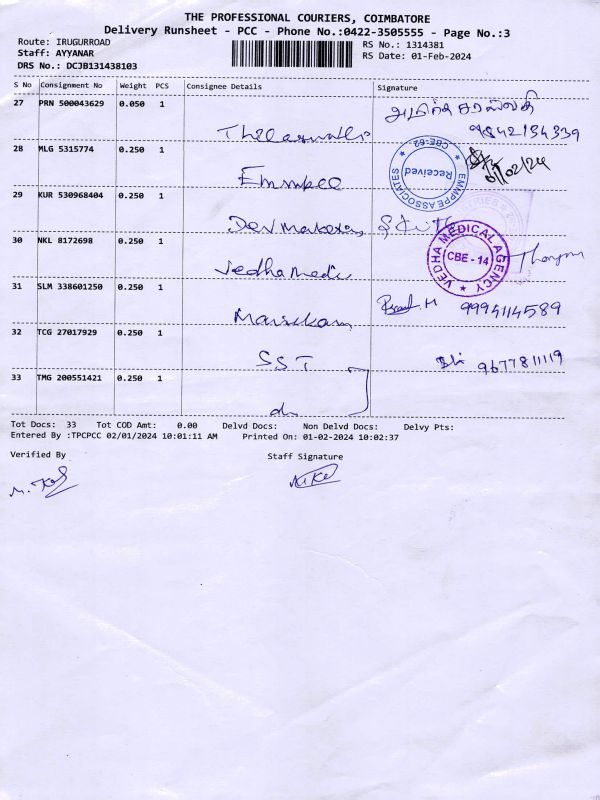 THE PROFESSIONAL COURIERS, COIMBATORE
Delivery Runsheet - PCC - Phone No.:0422-3505555 - Page No.:3
Route: IRUGURROAD
RS No.: 1314381
Staff: AYYANAR
RS Date: 01-Feb-2024
DRS No.: DCJB131438103
S No Consignment No Weight PCS Consignee Details Signature
27 PRN 500043629 0.050 1
9842134339
28 MLG 5315774 0.250 1 Emmpee
EMMPEE ASSOCIATES Received CBE-62
01/02/24
29 KUR 530968404 0.250 1
30 NKL 8172698 0.250 1 Vedha Medi
VEDHA MEDICAL AGENCY CBE - 14
31 SLM 338601250 0.250 1 Manikam
9994114589
32 TCG 27017929 0.250 1 SST
9677811119
33 TMG 200551421 0.250 1 do
Tot Docs: 33 Tot COD Amt: 0.00 Delvd Docs: Non Delvd Docs: Delvy Pts:
Entered By :TPCPCC 02/01/2024 10:01:11 AM Printed On: 01-02-2024 10:02:37
Verified By Staff Signature